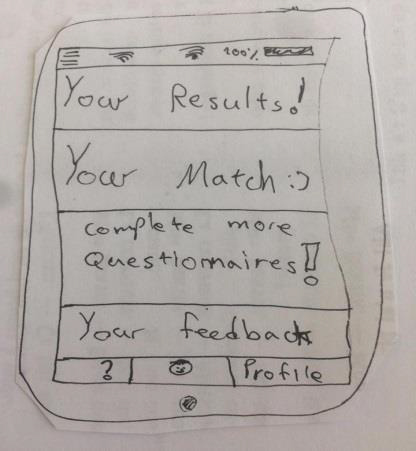 100%
Your Results!
Your Match :)
complete more
Questionnaires!
Your feedback
? Profile